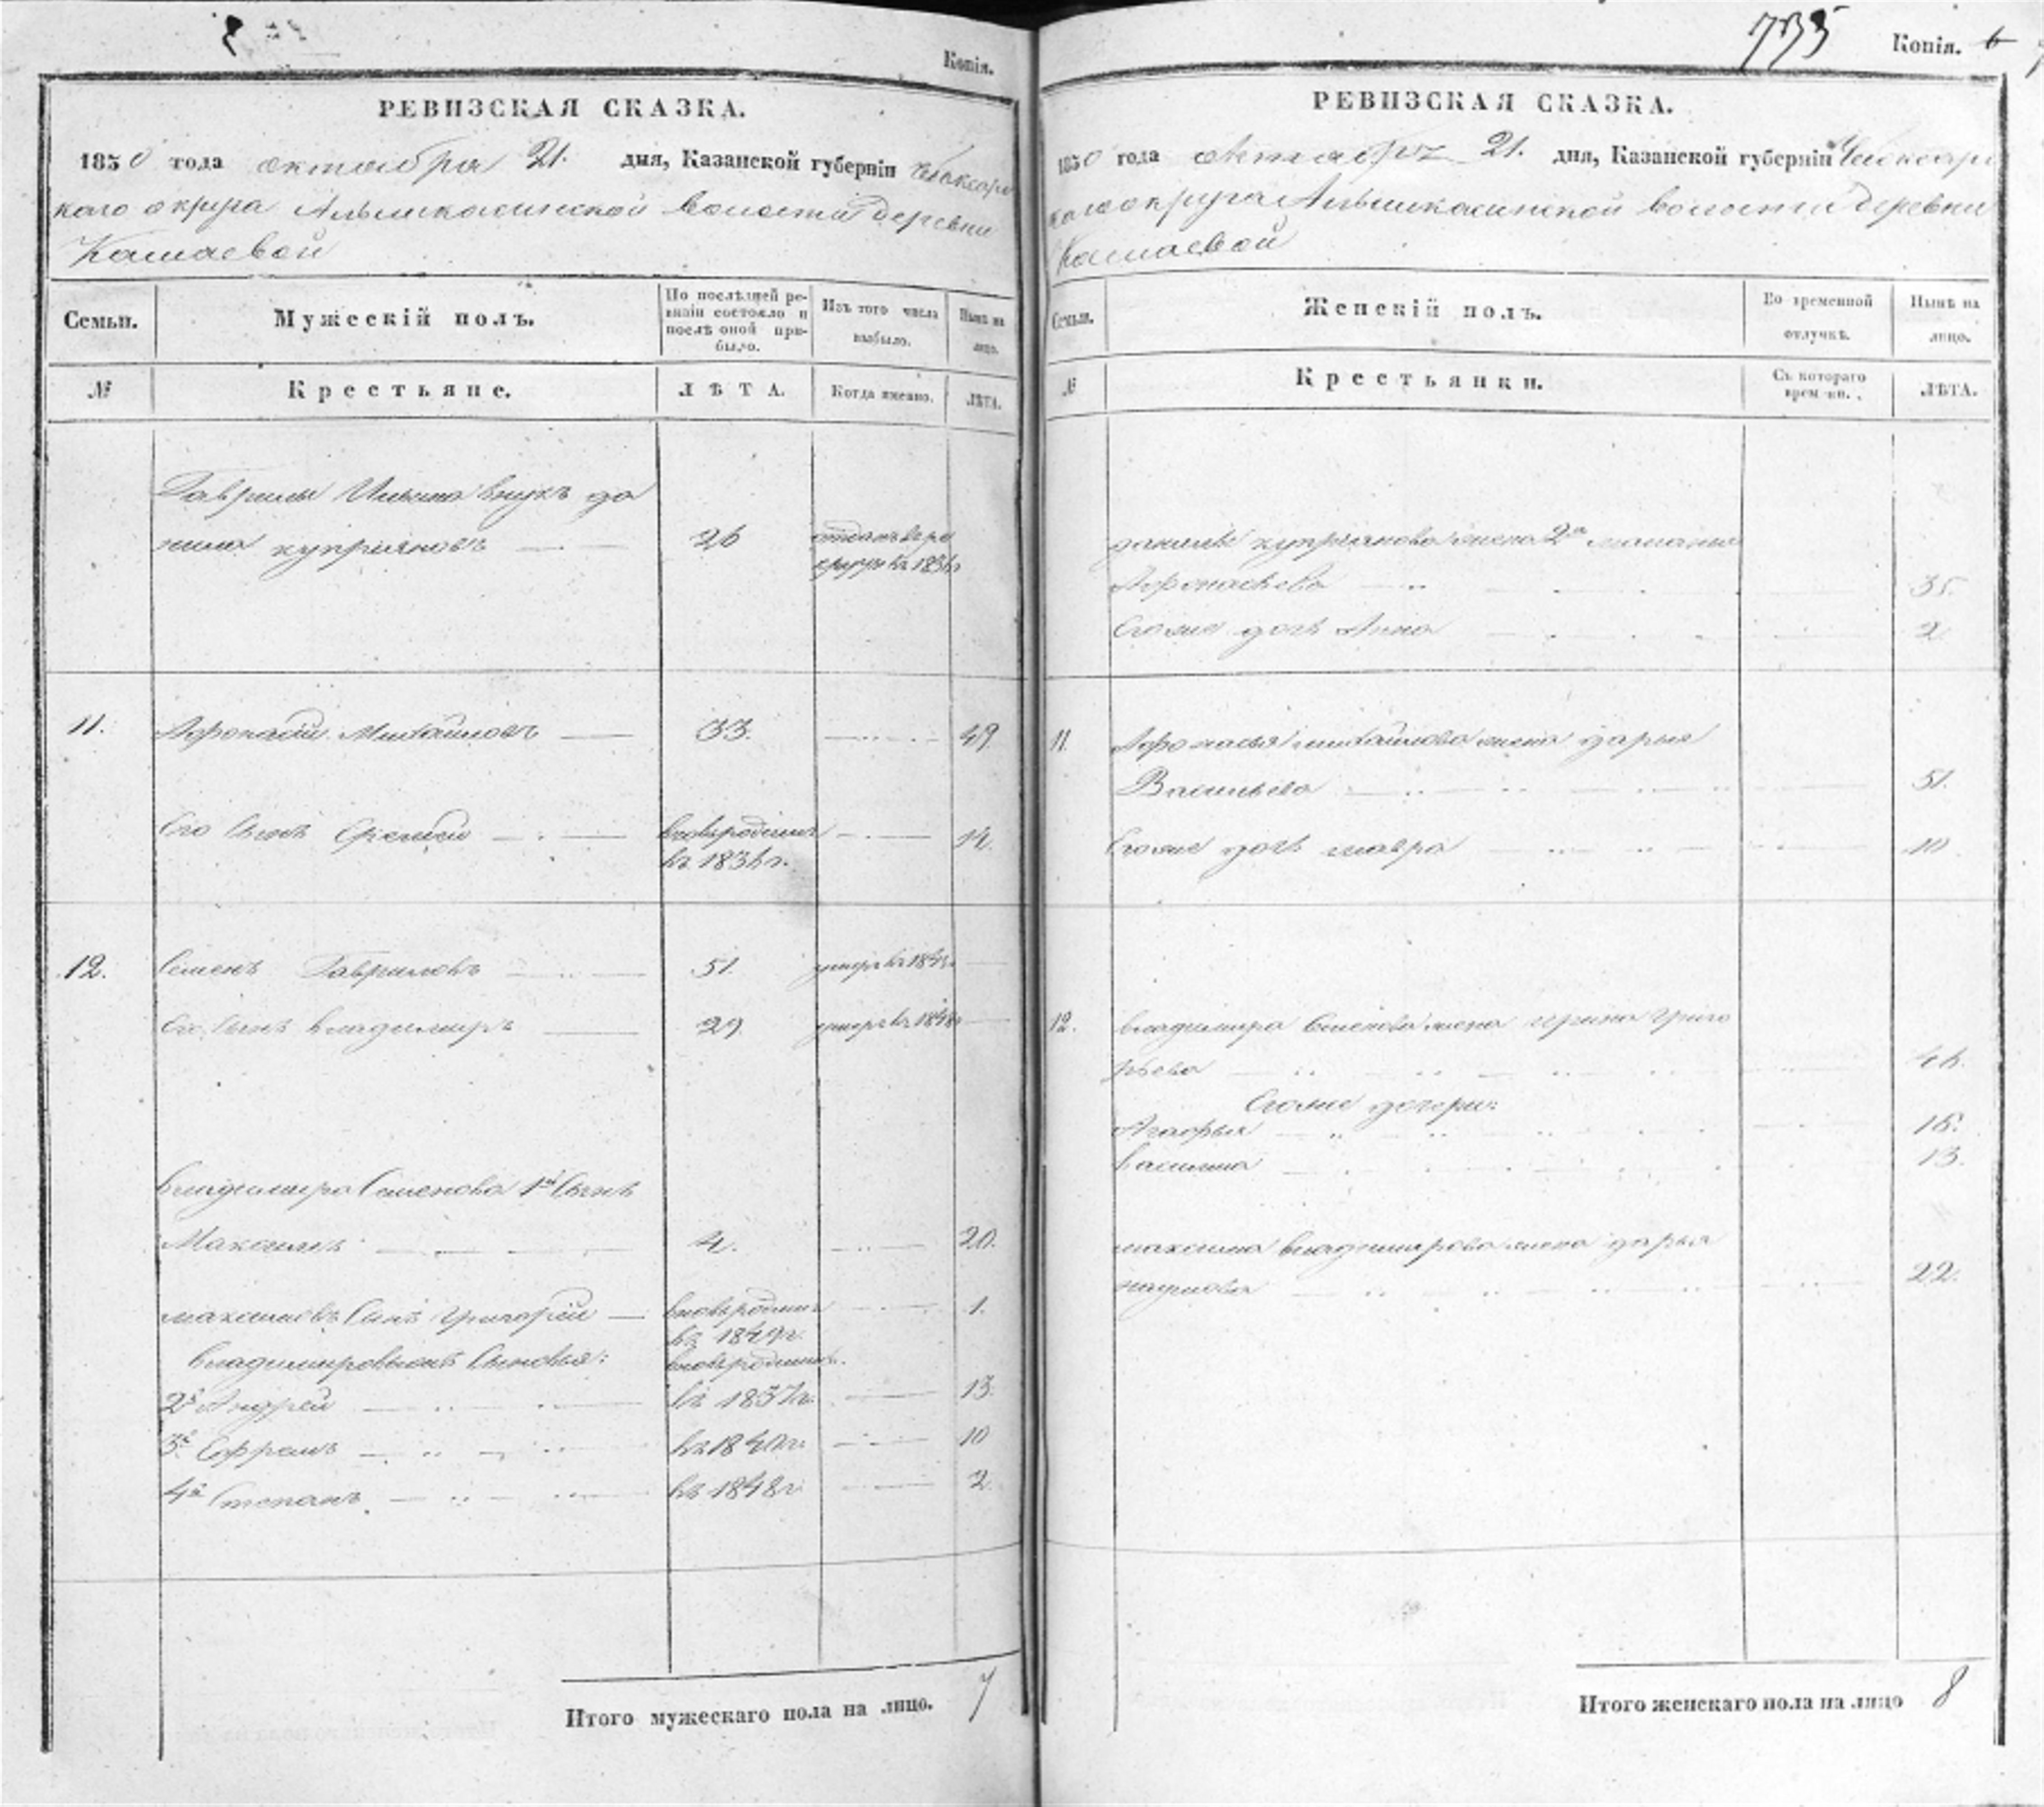 Копія.
РЕВИЗСКАЯ СКАЗКА.
1850 года октября 21. дня, Казанской губерніи Чебоксарс
каго округа Алымкасинской волости деревни
Кашаевой
Семьи.
Мужескій полъ.
По послѣдней ре-
визіи состояло и
послѣ оной при-
было.
Изъ того числа
выбыло.
Нынѣ на
лицо.
№
Крестьяне.
ЛѢТА.
Когда именно.
ЛѢТА.
Гаврилы Ильина внукъ да
нила куприяновъ 26 отданъ въ ре
круты въ 1836г
11. Афонасій Михайловъ 33. 49.
Его сынъ Еремей вновьрожденъ 14.
въ 1836г.
12. Семенъ Гавриловъ 51. умеръ въ
Его сынъ владимиръ 29. умеръ въ 1848г
Владимира Семенова 1й сынъ
Максимъ 4. 20.
максимовъ сынъ григорей вновьрожденъ 1.
въ 1849г.
Владимировыхъ сыновья:
2й Андрей въ 1837г. 13.
3й Ефремъ въ 1840г. 10
4й Степанъ въ 1848г 2
Итого мужескаго пола на лицо. 7
735 Копія. 6
РЕВИЗСКАЯ СКАЗКА.
1850 года октября 21. дня, Казанской губерніи Чебоксарс
каго округа Алымкасинской волости деревни
Кашаевой
Семьи.
Женскій полъ.
Во временной
отлучкѣ.
Нынѣ на
лицо.
№
Крестьянки.
Съ котораго
времени.
ЛѢТА.
данилы куприянова жена 2я маланья
Афонасьева 35.
Его же дочь Анна 2
11. Афонасья михайлова жена дарья
Васильева 51.
Его же дочь мавра 10
12. владимира Семенова жена ирина григо
рьева 46.
Его же дочери:
Агафья 16.
василиса 13.
максима владимирова жена дарья
наумова 22.
Итого женскаго пола на лицо 8